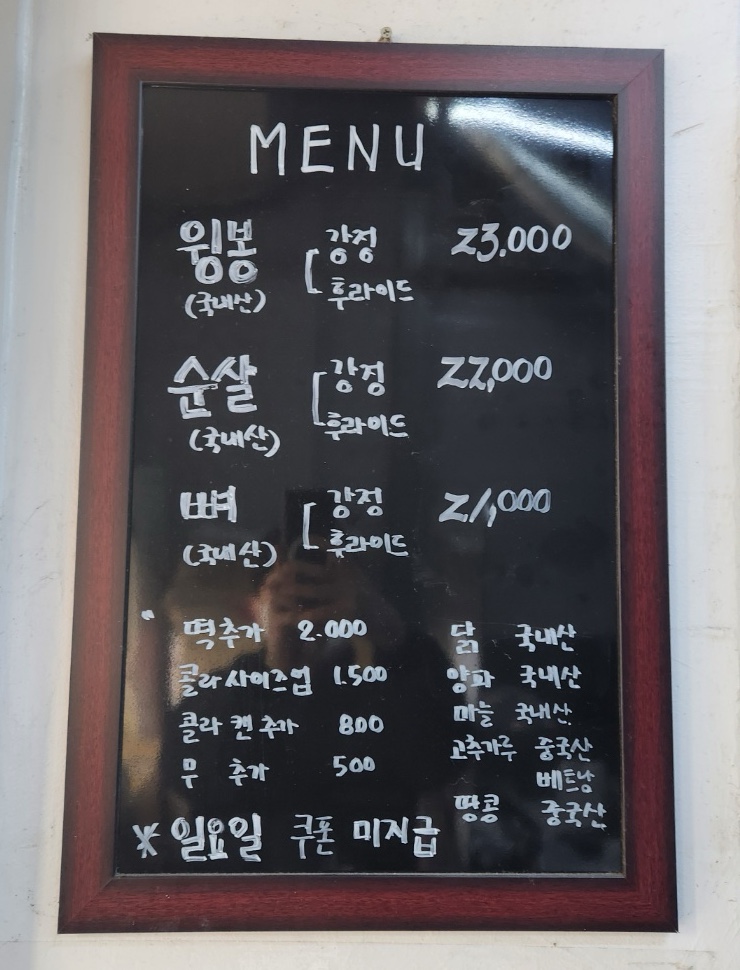 MENU
윙봉 강정 23.000
(국내산) 후라이드
순살 강정 22,000
(국내산) 후라이드
뼈 강정 21,000
(국내산) 후라이드
떡추가 2.000
콜라사이즈업 1.500
콜라 캔 추가 800
무 추가 500
닭 국내산
양파 국내산
마늘 국내산
고추가루 중국산
베트남
땅콩 중국산
※ 일요일 쿠폰 미지급